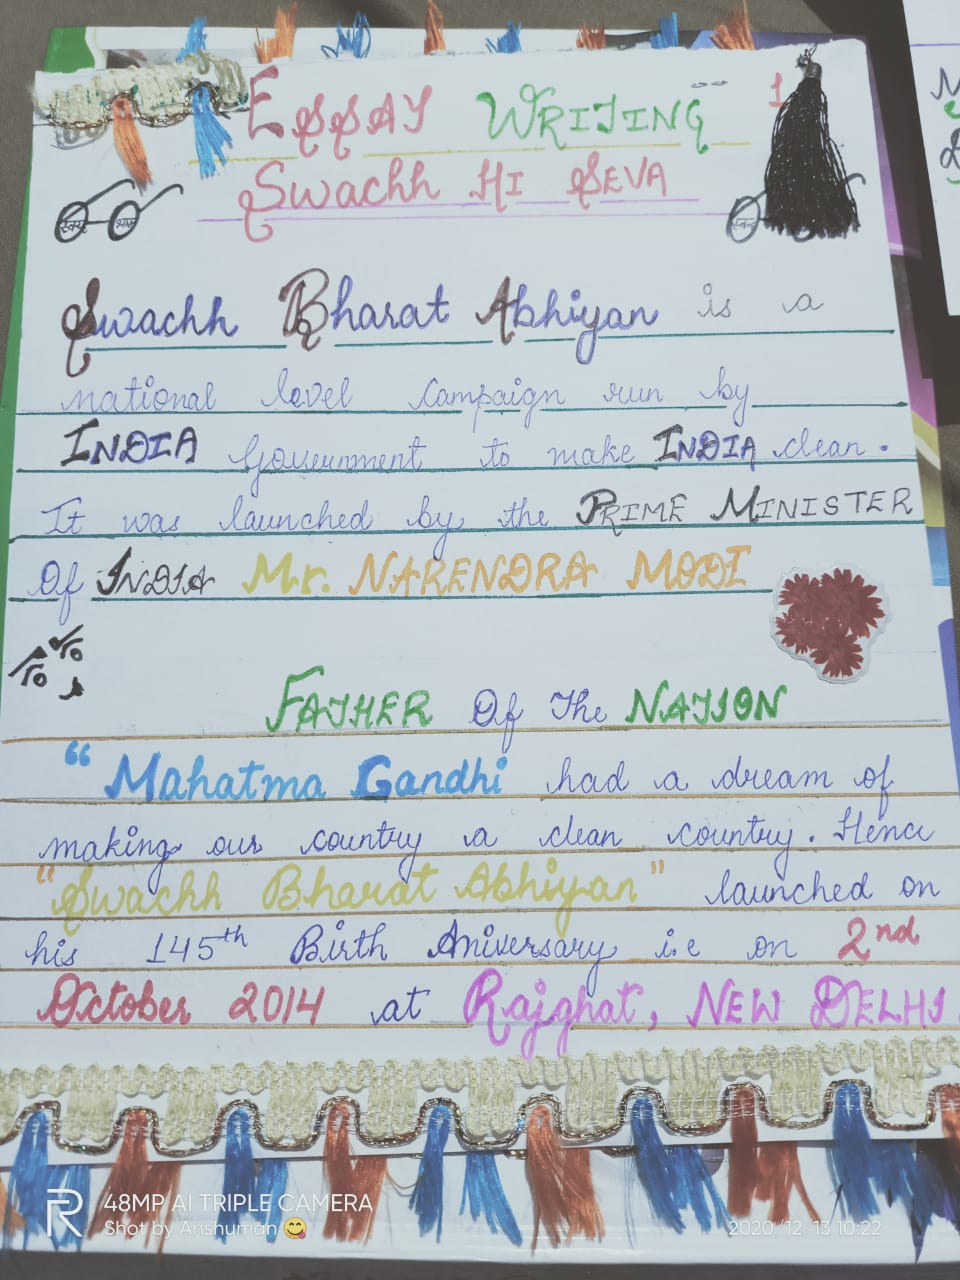 ESSAY WRITING 1
SWachh HI SEVA
स्वच्छ भारत
Swachh Bharat Abhiyan is a
national level campaign run by
INDIA Government to make INDIA clean.
It was launched by the PRIME MINISTER
Of INDIA Mr. NARENDRA MODI
FATHER Of The NATION
“Mahatma Gandhi had a dream of
making our country a clean country. Hence
"Swachh Bharat Abhiyan" launched on
his 145th Birth Aniversary i.e on 2nd
October 2014 at Rajghat, NEW DELHI
48MP AI TRIPLE CAMERA
Shot by Anshuman 😋
2020/12/13 10:22